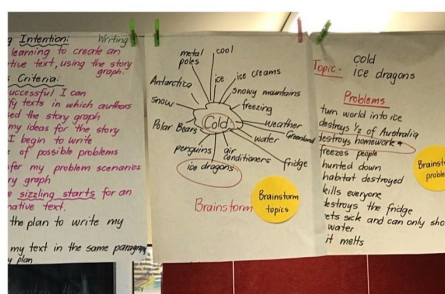 g Intention: Writing
learning to create an
tive text, using the story
graph.
s Criteria:
uccessful I can
fy texts in which authors
sed the story graph
my ideas for the story
I begin to write
e of possible problems
fer my problem scenarios
ry graph
e sizzling starts for an
native text.
the plan to write my
my text in the same paragrap
y plan
metal
poles
cool
ice
ice creams
Antarctica
snowy mountains
snow
freezing
Cold
weather
Polar Bears
Greenland
water
penguins
air
conditioners
fridge
ice dragons
Brainstorm
Brainstorm
topics
Topic - cold
ice dragons
Problems
turn world into ice
destroys 1/2 of Australia
destroys homework *
freezes people
hunted down
habitat destroyed
kills everyone
estroys the fridge
ets sick and can only sho
water
it melts
Brainsto
proble